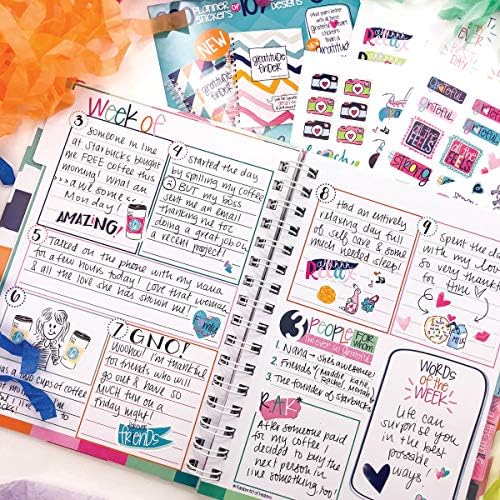 PLANNER
STICKERS OF 10
DESIGNS
NEW
gratitude
finder
NEW
gratitude
grateful
grateful
all the
FEELS
all the
FEELS
strong
Week of
3
Someone in line
at Starbucks bought
me FREE coffee this
morning! What an
...awesome...
Monday!
AMAZING!
4
I started the day
by spilling my coffee
BUT my boss
sent me an email
thanking me for
doing a great job on
a recent project!
5
Talked on the phone with my nana
for a few hours today! Love that woman
& all the love she has shown me!
6
had two cups of coffee
7
G.N.O!
Woohoo! I'm thankful
for friends who will
go out & have so
much fun on a
friday night!
FRIENDS
8
Had an entirely
relaxing day full
of self care & some
much needed sleep!
Relax
9
Spent the day
with my love
so very thankful
for Him
3 PEOPLE FOR
WHOM
I'm ever so grateful
1. Nana → she's awesome!
2. Friends (maddie, katie,
rachel, mariah)
3. The founder of starbucks
RAK*
After someone paid
for my coffee I
decided to buy the
next person in
line something too!
*Random Act of Kindness
WORDS
of the
WEEK
Life can
surprise you
in the best
possible
ways.